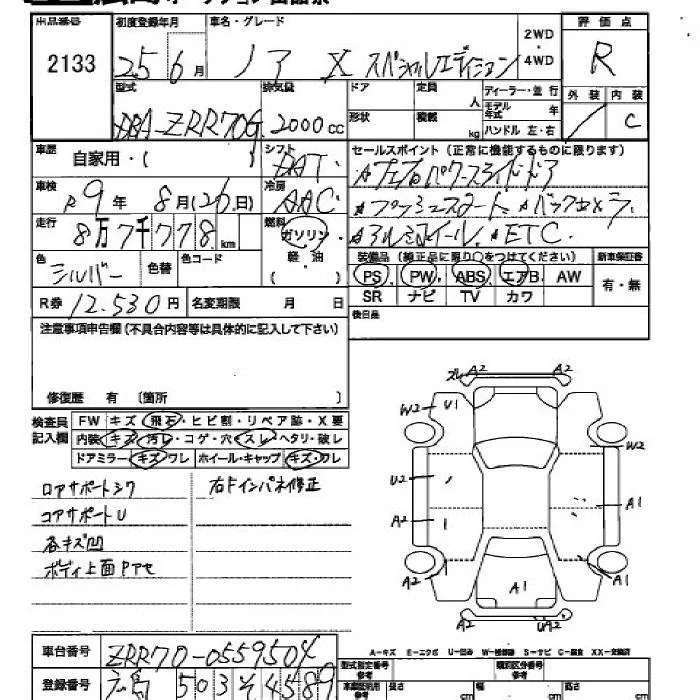 出品番号 初度登録年月 車名・グレード 2WD・4WD 評価点
2133 25 6月 ノア X スペシャルエディション R
外装 内装
C
型式 排気量 ドア 定員 人 ディーラー・並行
DBA-ZRR70G 2000cc 形状 積載 kg モデル年式 年
ハンドル 左・右
車歴 自家用・( シフト DAT
セールスポイント(正常に機能するものに限ります)
☆ 両パワースライドドア
☆プッシュスタート ☆バックカメラ
☆アルミホイール ☆ETC
車検 R9年 8月(26日) 冷房 AAC
走行 8万7千778km 燃料 ガソリン・軽油 ( )
色 シルバー 色替 色コード
装備品(純正品に限り○をつけてください) 新車保証書
PS PW ABS エアB AW 有・無
SR ナビ TV カワ
R券 12.530円 名変期限 月 日
後日品
注意事項申告欄(不具合内容等は具体的に記入して下さい)
修復歴 有 〔箇所 〕
検査員記入欄
FW キズ・飛石・ヒビ割・リペア跡・X要
内装・キズ・汚レ・コゲ・穴・スレ・ヘタリ・破レ
ドアミラー・キズ・ワレ ホイール・キャップ・キズ・ワレ
ロアサポートシワ 右Fインパネ修正
コアサポートU
各キズ凹
ボディ上面Pアセ
ズレ A2 A2
W2 U1
W2
U2
A1
A2
A2 A1 A1
A2 UA2
A-キズ E-エクボ U-凹み W-補修跡 S-サビ C-腐食 XX-交換済
車台番号 ZRR70-0559504
登録番号 広島 503 そ 4589
型式指定番号 参考 類別区分番号 参考
長さ cm 幅 cm 高さ cm